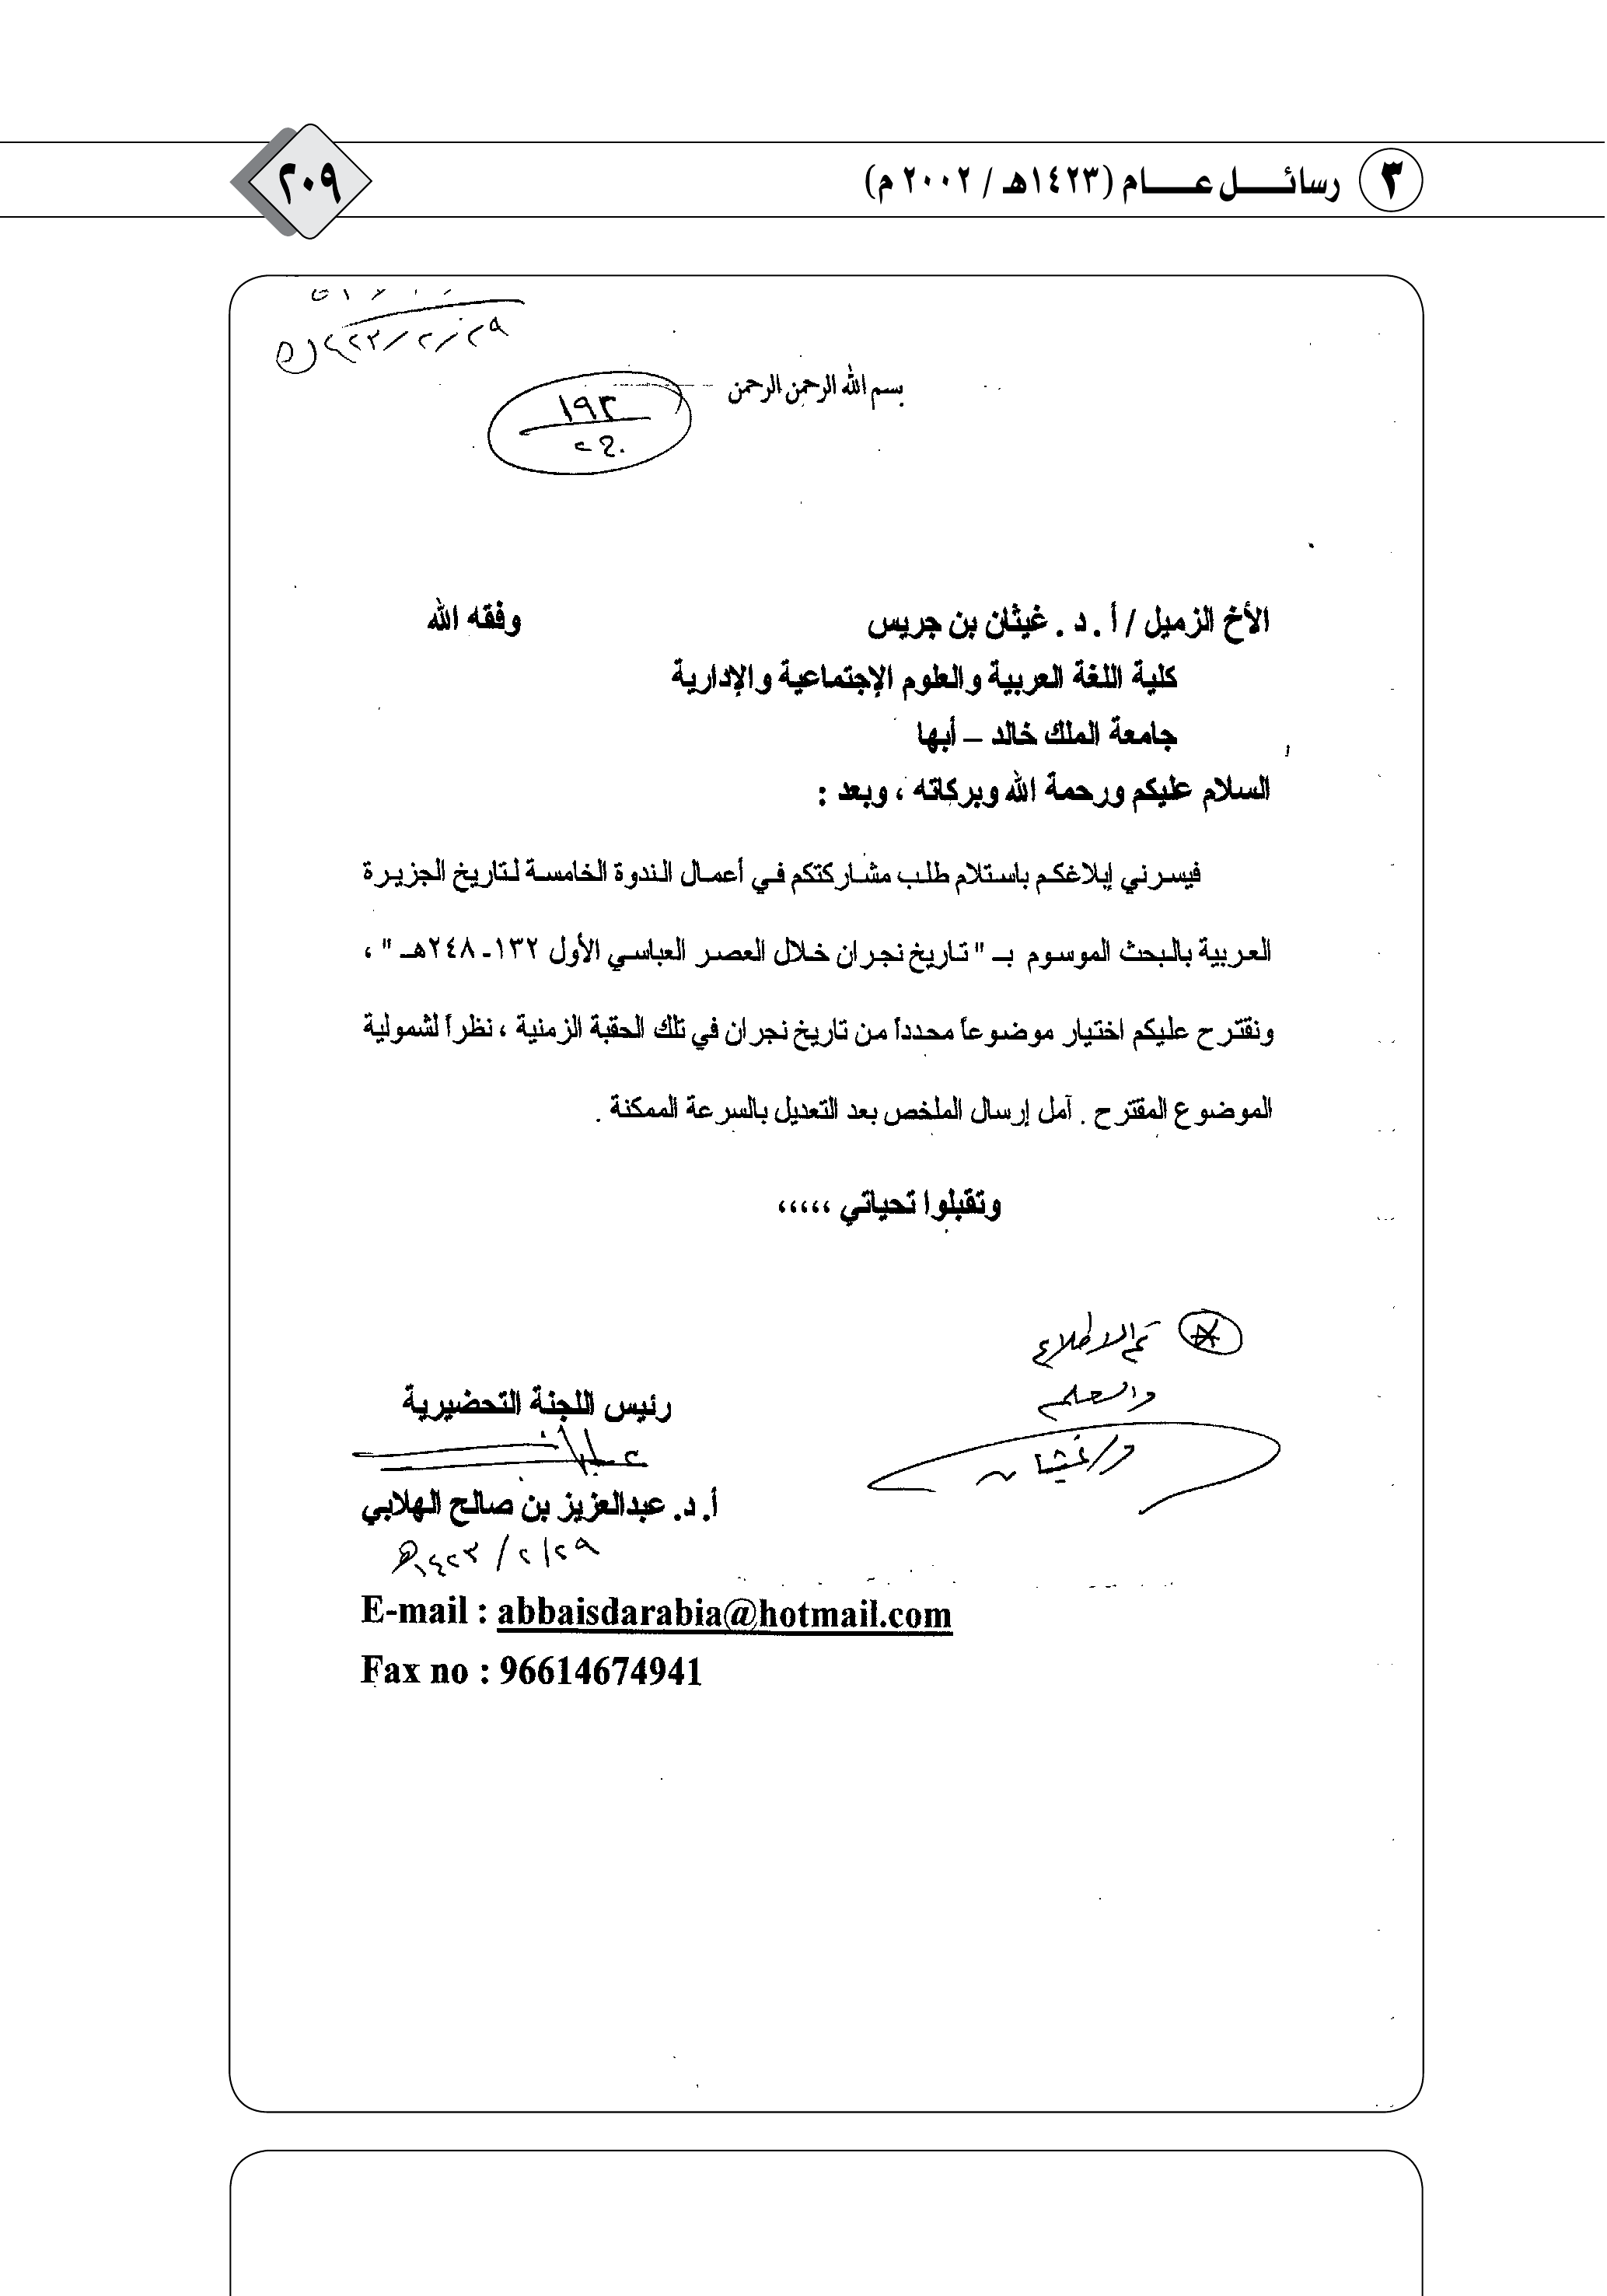 ٣ رسائل عام (١٤٢٣هـ / ٢٠٠٢ م)
٢٠٩
٢٩/٢/١٤٢٣هـ
بسم الله الرحمن الرحمن
١٩٣
الأخ الزميل / أ . د . غيثان بن جريس وفقه الله
كلية اللغة العربية والعلوم الإجتماعية والإدارية
جامعة الملك خالد – أبها
السلام عليكم ورحمة الله وبركاته ، وبعد :
فيسرني إبلاغكم باستلام طلب مشاركتكم في أعمال الندوة الخامسة لتاريخ الجزيرة
العربية بالبحث الموسوم بـ " تاريخ نجران خلال العصر العباسي الأول ١٣٢-٢٤٨هـ " ،
ونقترح عليكم اختيار موضوعاً محدداً من تاريخ نجران في تلك الحقبة الزمنية ، نظراً لشمولية
الموضوع المقترح . آمل إرسال الملخص بعد التعديل بالسرعة الممكنة .
وتقبلوا تحياتي ،،،،،
تم الاطلاع
والعلم
د/ غيثان
رئيس اللجنة التحضيرية
أ. د. عبدالعزيز بن صالح الهلابي
٢٩/٢/١٤٢٣هـ
E-mail : abbaisdarabia@hotmail.com
Fax no : 96614674941